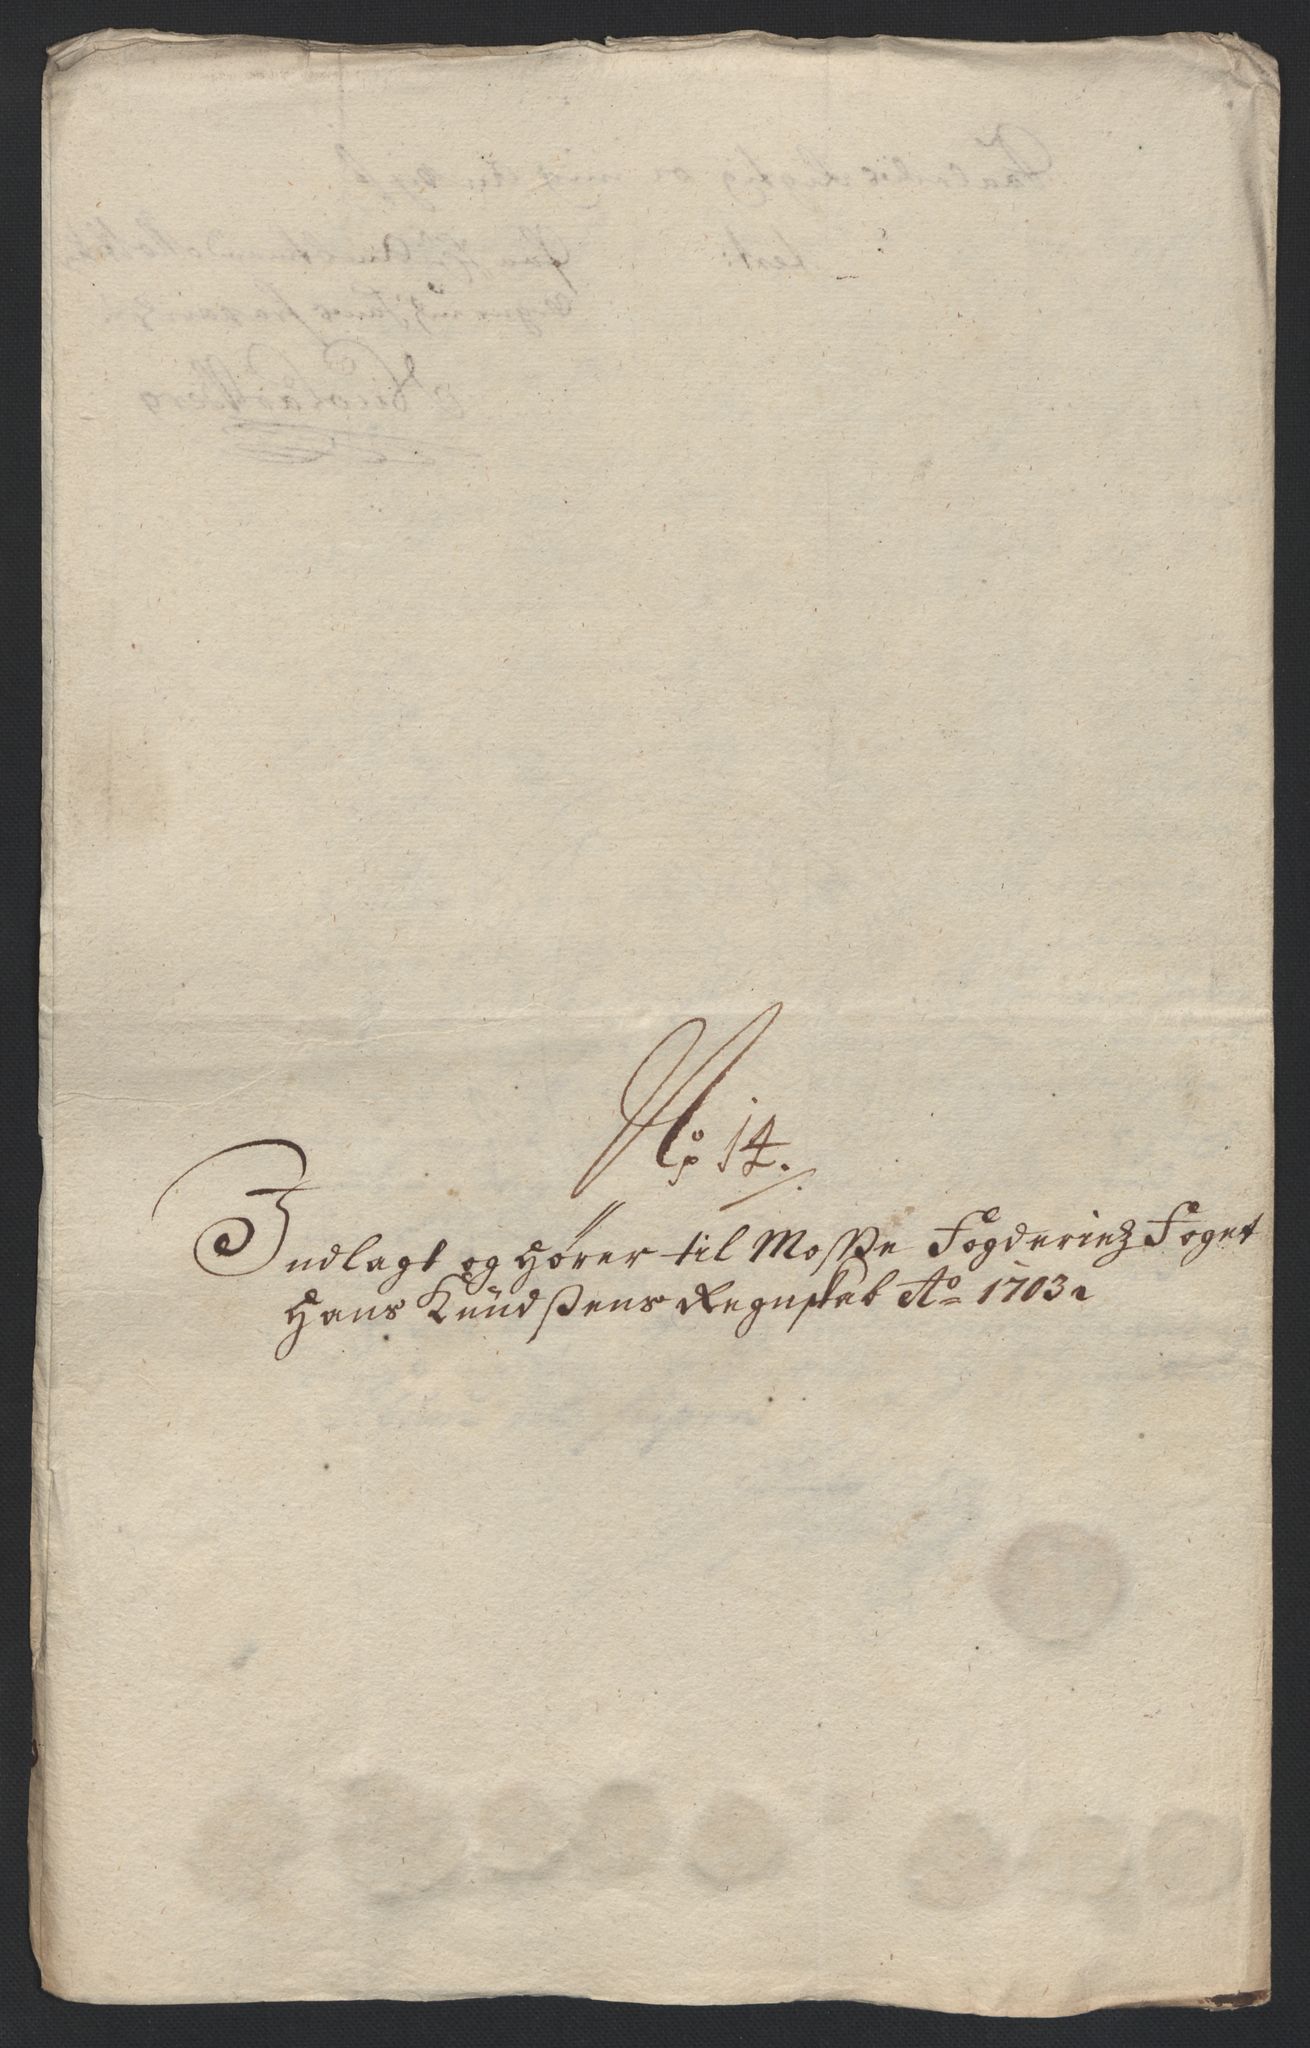 No 14.
Indlagt og hører til Mosse Fogderiez Foget
Hans Knüdßens Regnskab Ao 1703